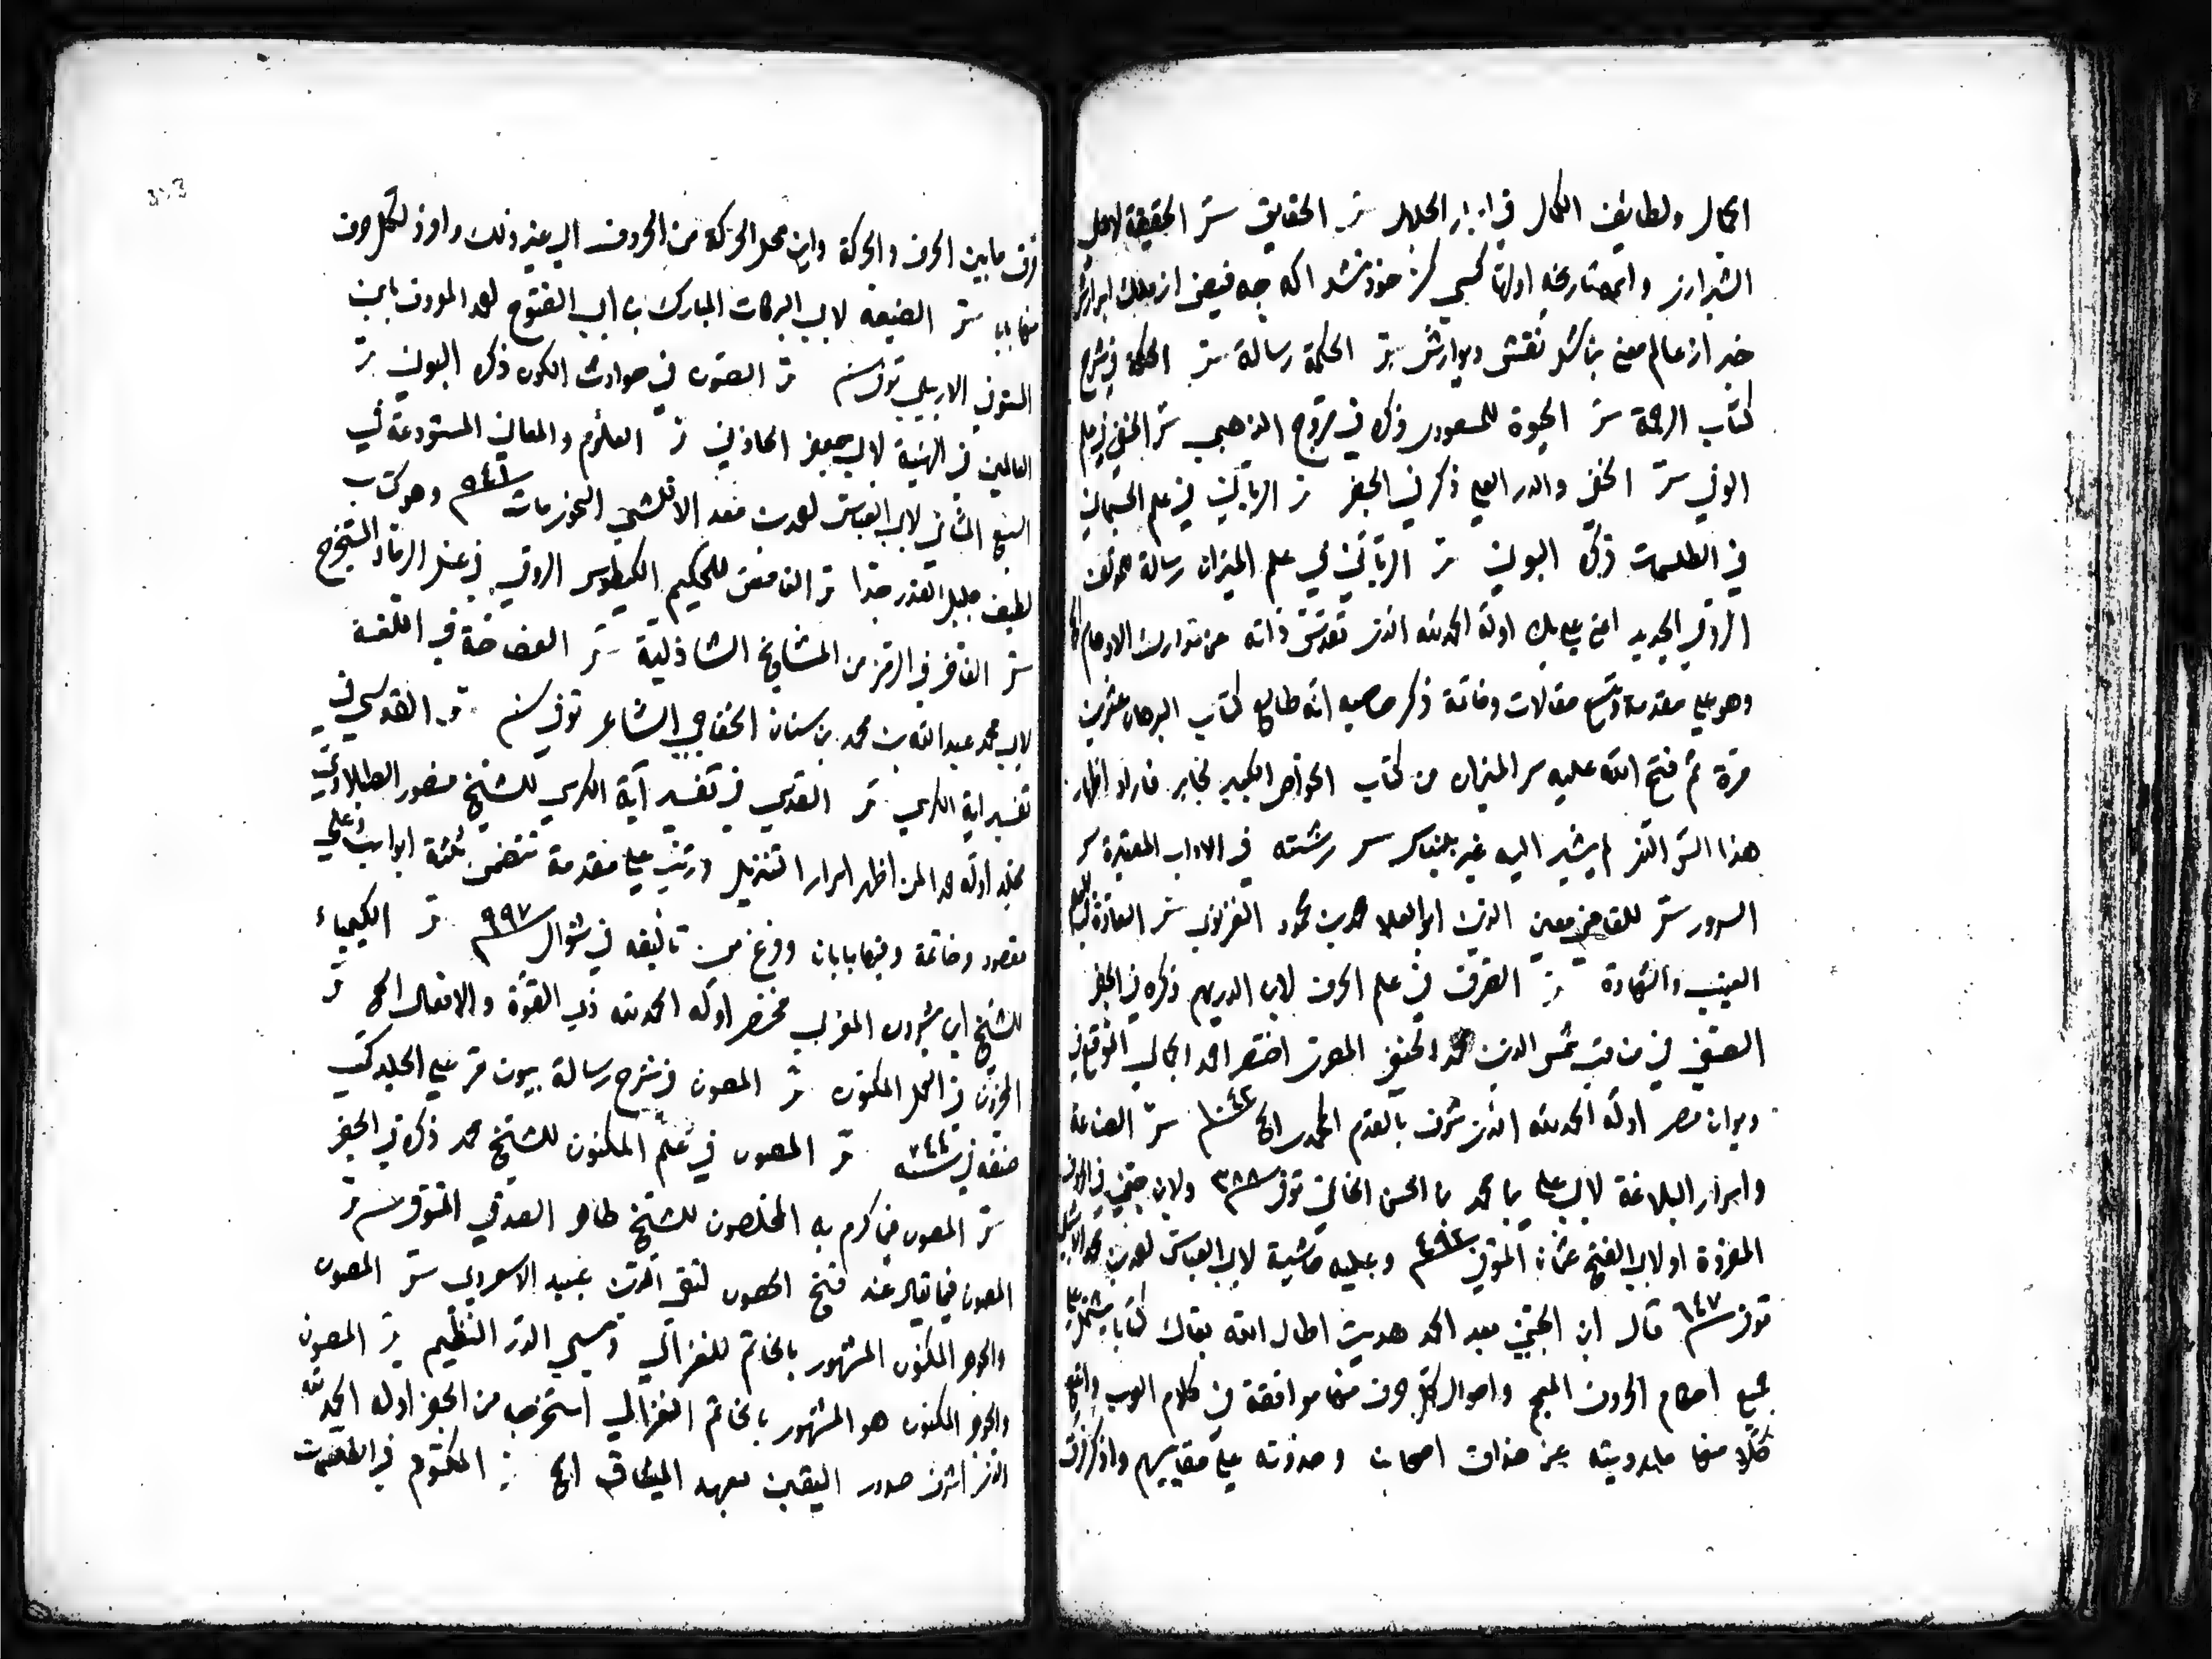 الجمال ولطايف الكمال في اسرار الجلال سر الحقايق سر الحقيقة لاهل
الشيرازي
خبر از عالم معنى نقش ديوارش سر الحكمة رسالة سر الحكمة في شرح
كتاب الرحمة سر الحيوة للمسعودي ذكره في مروج الذهب سر الخفي في علم
الوفي سر الخفي والدر العلي ذكر في الجفر سر الرباني في علم الجسماني
في الطلسمات ذكره البوني سر الرباني في علم الميزان رسالة للمؤلف
الرومي الجديد اعني علي بك اوله الحمد لله الذي تقدس ذاته عن توارث الاوهام الخ
وهو على مقدمة وتسع مقالات وخاتمة ذكر صاحبه انه طالع كتاب البرهان عشرين
مرة ثم فتح الله عليه سر الميزان من كتاب الخواص الكبير لجابر فاراد اظهار
هذا السر الذي لم يشير اليه غير بليناس سر رشته في الاداب المعتبرة سر
السرور سر للقاضي معين الدين ابو العلا محمد بن محمود الغزنوي سر السعادة في علم
الغيب والشهادة سر الصرف في علم الحرف لابن الدريهم ذكره في الجفر
الصفي في مناقب شمس الدين محمد الحنفي المصري اختصر احمد الجمالي الموقع في
ديوان مصر اوله الحمد لله الذي شرف بالقدم المحمدي الخ ١٠٤٢ سر الصناعة
واسرار البلاغة لابي علي بن محمد بن الحسن الحاتمي توفي ٣٨٨ ولابن جني في الحروف
المفردة اولابي الفتح عثمان المتوفي ٤٩٢ وعليه حاشية لابي العباس احمد بن محمد الاشبيلي
توفي ٦٤٧ قال ابن الجني بعد الحمد هديت اطال الله بقاك كتابا يشتمل على
جميع احكام الحروف المعجم واحوال كل حرف منها موافقة في كلام العرب واتبع
كلا منها مما رويته عن حذاق اصحابنا وحذوته على مقاييسهم واذكر فرق
فرق ما بين الحرف والحركة واين محل الحركة من الحروف الى غير ذلك وافرد لكل حرف
منها بابا سر الصنيعة لابي البركات المبارك بن ابي الفتوح احمد المعروف بابن
المستوفي الاربلي توفي سنة سر الصون في حوادث الكون ذكره البوني سر
العالمين في الهيئة لابي جعفر الخازني سر العلوم والمعاني المستودعة في
السبع المثاني لابي العباس احمد بن معد الاقليشي النحوي مات ٥٤٩ وهو كتاب
لطيف جليل القدر جدا سر الغامض للحكيم الرومي في عمل الرماد المستخرج
سر الفاخر في الرمز من المشايخ الشاذلية سر الفصاحة في اللغة
لابي محمد عبد الله بن محمد بن سنان الخفاجي الشاعر توفي سنة سر القدسي في
تفسير اية الكرسي سر القدسي في تفسير آية الكرسي للشيخ منصور الطبلاوي
مجلد اوله حمدا لمن اظهر اسرار التنزيل ورتب على مقدمة تتضمن ثلثة ابواب وعلى
مقصود وخاتمة وفيها بابان وفرغ من تأليفه في شوال ٩٩٧ سر الكيمياء
للشيخ ابن بشرون المغربي مختصر اوله الحمد لله ذي القوة والافعال الخ سر
المخزون في العمل المكنون سر المصون في شرح رسالة بيون
صنفه في سنة ٧٤٤ سر المصون في علم المكنون للشيخ محمد ذكره في الجفر
سر المصون فيما كرم به المخلصون للشيخ طاهر الصدفي المتوفي سنة سر
المصون فيما يقال عند فتح الحصون لتقي الدين عبيد الاسعردي سر المصون
والجوهر المكنون المشهور بالخاتم للغزالي ويسمى الدر النظيم سر المصون
والجوهر المكنون هو المشهور بخاتم الغزالي استخرجه من الجفر اوله الحمد لله
الذي اشرق صدور اليقين بعهد الميثاق الخ سر المكتوم في الطلسمات